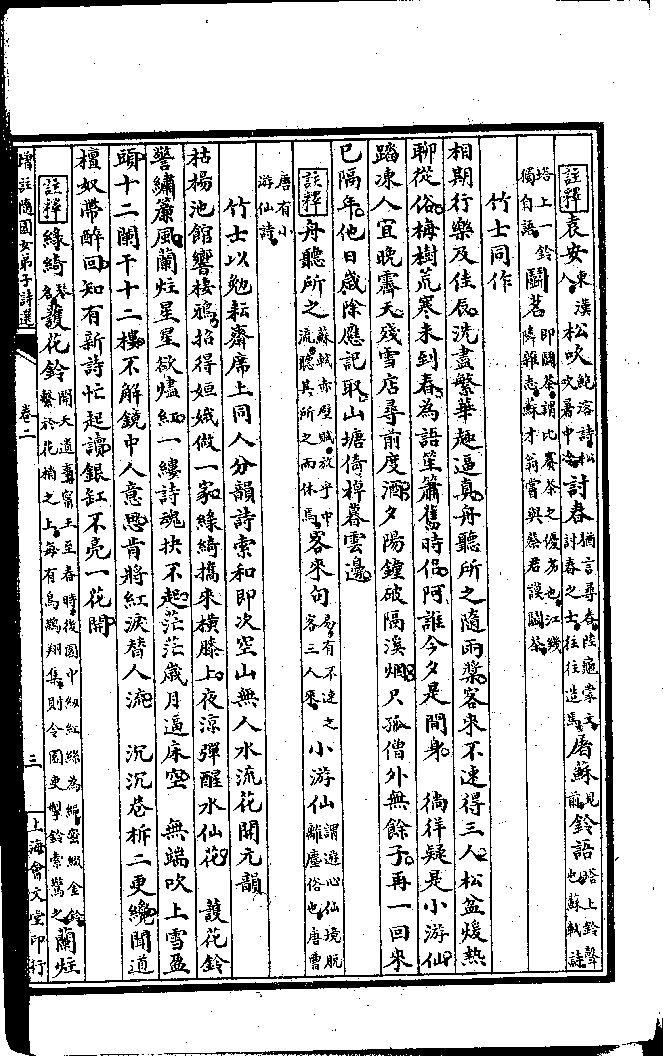 註釋 袁安東漢人 松吹鮑溶詩松吹暑中冷 討春猶言尋春陸龜蒙文討春之士往往造焉 屠蘇見前 鈴語塔上鈴聲也蘇軾詩
塔上一鈴獨自語 鬭茗即鬭茶謂比賽茶之優劣也江鄰幾雜志蘇才翁嘗與蔡君謨鬭茶
竹士同作
相期行樂及佳辰洗盡繁華趣逼真舟聽所之隨雨槳客來不速得三人松盆煖熱
聊從俗梅樹荒寒未到春為語笙簫舊時侶阿誰今夕是閒身 徜徉疑是小游仙
踏凍人宜晚霽天殘雪店尋前度酒夕陽鐘破隔溪烟只孤僧外無餘子再一回來
已隔年他日歲除應記取山塘倚棹暮雲邊
註釋 舟聽所之蘇軾赤壁賦放乎中流聽其所之而休焉 客來句易有不速之客三人來 小游仙謂遊心仙境脫離塵俗也唐曹
唐有小游仙詩
竹士以勉耘齋席上同人分韻詩索和即次空山無人水流花開元韻
枯楊池館響棲鴉招得姮娥做一家綠綺攜來橫膝上夜涼彈醒水仙花 護花鈴
警繡簾風蘭炷星星欲燼紅一縷詩魂扶不起茫茫歲月逼牀空 無端吹上雪盈
頭十二闌干十二樓不解鏡中人意思肯將紅淚替人流 沉沉巷柝二更纔聞道
檀奴帶醉回知有新詩忙起讀銀缸不亮一花開
註釋 綠綺琴名 護花鈴開天遺事甯王至春時後園中紉紅絲為繩密綴金鈴繫於花梢之上每有鳥鵲翔集則令園吏掣鈴索驚之 蘭炷
增註隨園女弟子詩選 卷二 三 上海會文堂印行